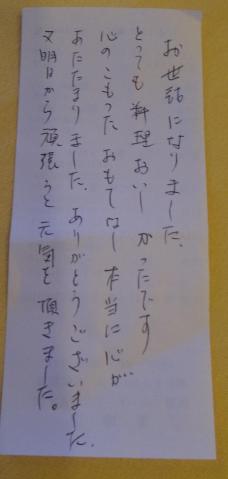 お世話になりました、
とっても料理おいしかったです
心のこもったおもてなし本当に心が
あたたまりました、ありがとうございました、
又明日から頑張ろと元気を頂きました。